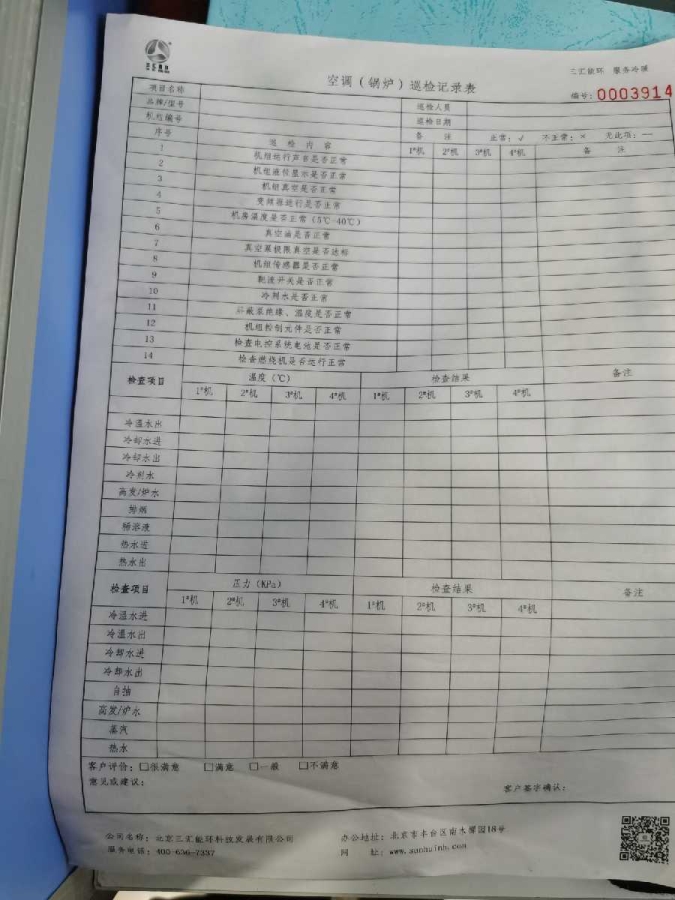 三汇能环 服务冷暖
空调（锅炉）巡检记录表
编号：0003914
项目名称
品牌/型号 巡检人员
机组编号 巡检日期
备 注 正常：√ 不正常：× 无此项：—
序号 巡 检 内 容 1#机 2#机 3#机 4#机 备 注
1 机组运行声音是否正常
2 机组液位显示是否正常
3 机组真空是否正常
4 变频器运行是否正常
5 机房温度是否正常（5℃-40℃）
6 真空油是否正常
7 真空泵极限真空是否达标
8 机组传感器是否正常
9 靶流开关是否正常
10 冷剂水是否正常
11 屏蔽泵绝缘、温度是否正常
12 机组控制元件是否正常
13 检查电控系统电池是否正常
14 检查燃烧机是否运行正常
检查项目 温度（℃） 检查结果 备注
1#机 2#机 3#机 4#机 1#机 2#机 3#机 4#机
冷温水出
冷却水进
冷却水出
冷剂水
高发/炉水
排烟
稀溶液
热水进
热水出
检查项目 压力（KPa） 检查结果 备注
1#机 2#机 3#机 4#机 1#机 2#机 3#机 4#机
冷温水进
冷温水出
冷却水进
冷却水出
自抽
高发/炉水
蒸汽
热水
客户评价：□很满意 □满意 □一般 □不满意
意见或建议：
客户签字确认：
公司名称：北京三汇能环科技发展有限公司 办公地址：北京市丰台区南木樨园18号
服务电话：400-656-7337 网 址：www.sanhuinh.com